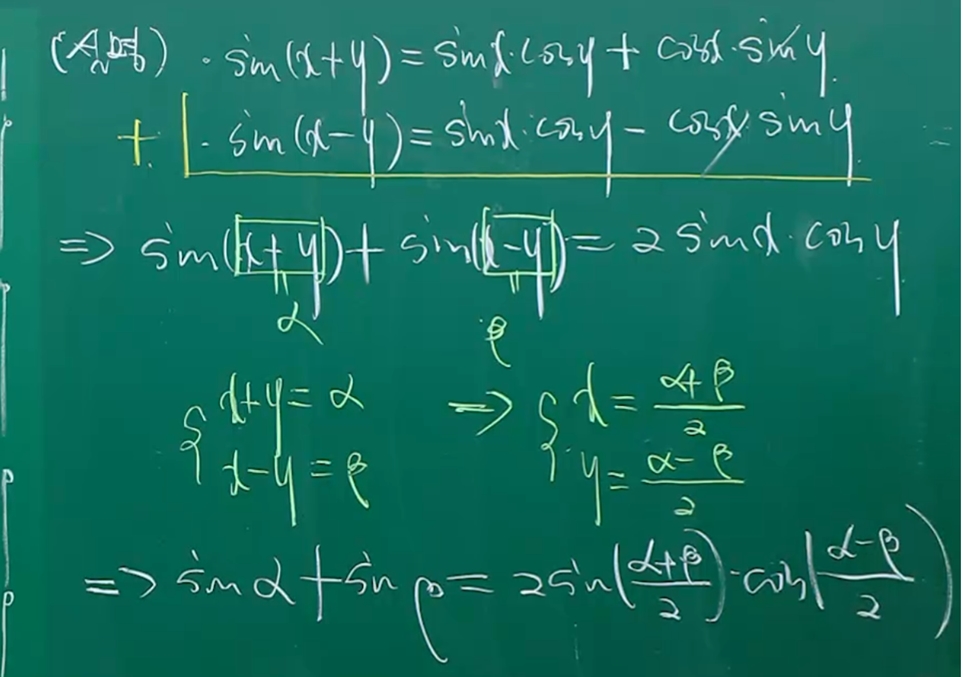 (증명) · sin(x+y) = sinx·cosy + cosx·siny
+ · sin(x-y) = sinx·cosy - cosx·siny
=> sin(x+y) + sin(x-y) = 2 sinx·cosy
α β
x+y = α => x = (α+β)/2
x-y = β y = (α-β)/2
=> sin α + sin β = 2 sin((α+β)/2)·cos((α-β)/2)